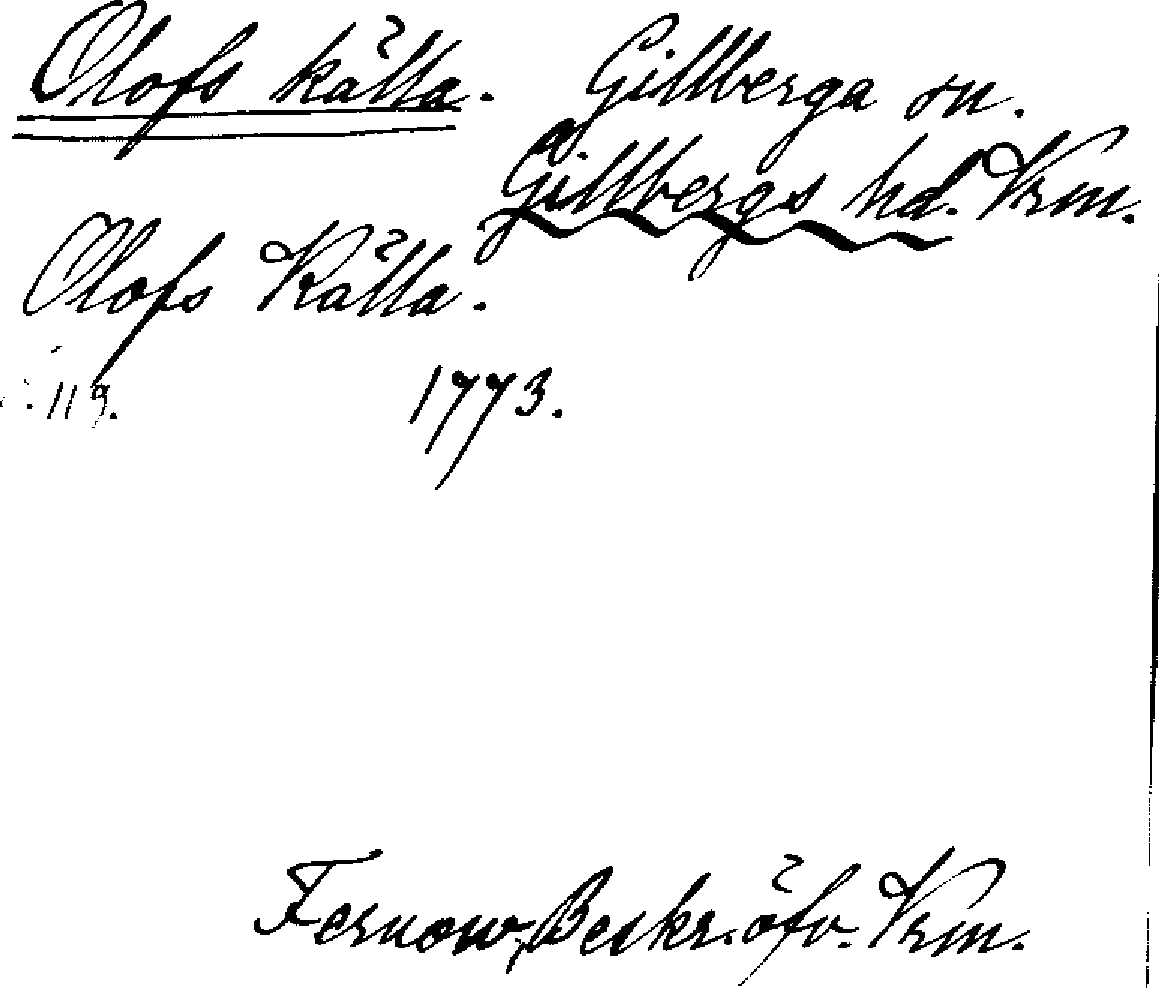 Olofs källa. Gillberga sn.
Gillbergs hd. Vrm.
Olofs Källa.
: 119. 1773.
Fernow, Beskr. öfv. Vrm.